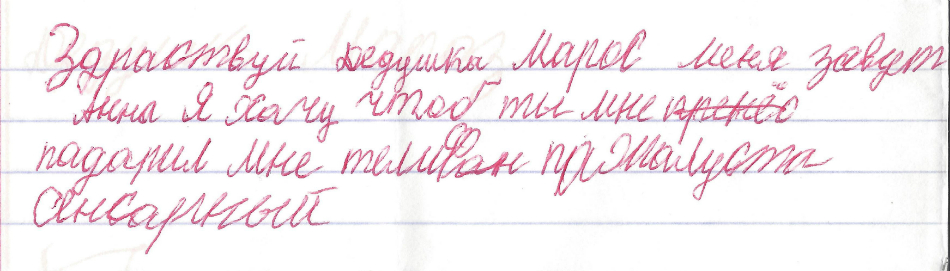 Здраствуй Дедушка Марос меня завут
Анна Я хачу чтоб ты мне принёс
падарил мне телифан пржалуста
сенсарный